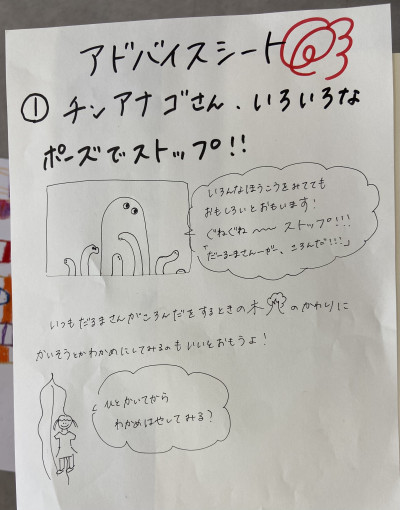 アドバイスシート
① チンアナゴさん、いろいろな
ポーズでストップ!!
いろんなほうこうをみてても
おもしろいとおもいます!
ぐねぐね〜〜ストップ!!!
「だーるーまさんーがー、ころんだ!!!」
いつもだるまさんがころんだをするときの木のかわりに
かいそうとかわかめにしてみるのもいいとおもうよ!
ひとかいてから
わかめはやしてみる?